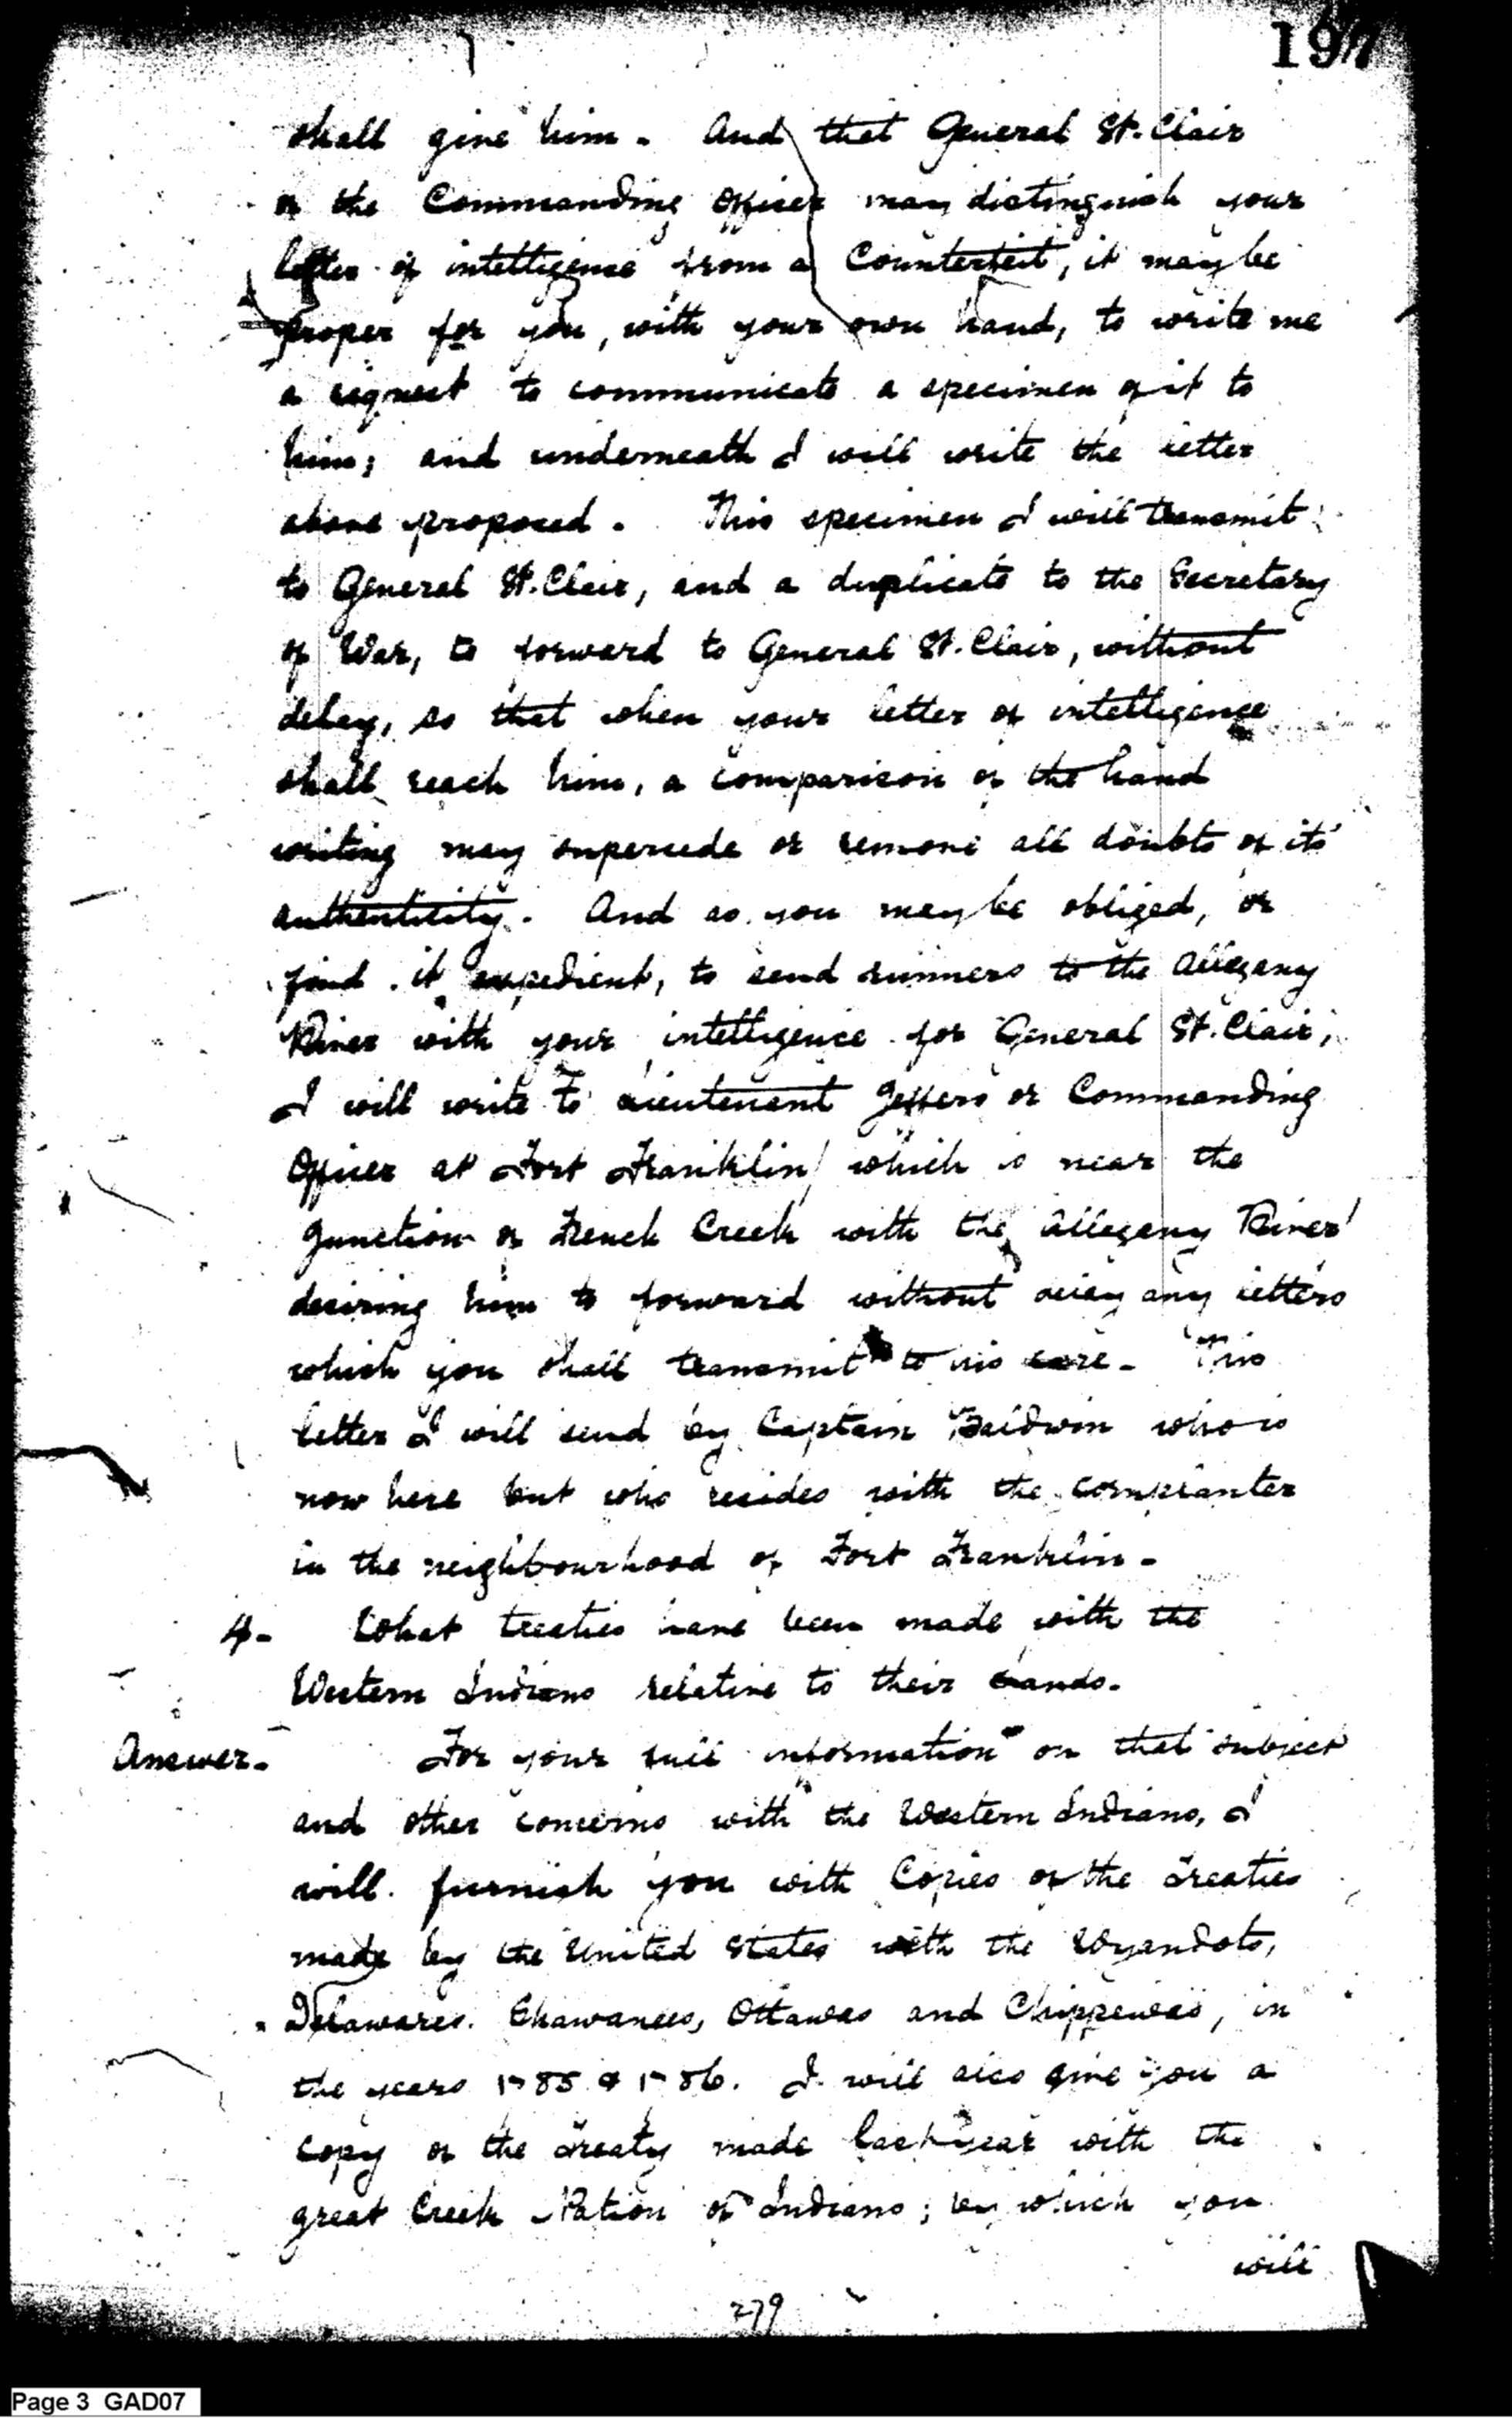 197
shall give him. And that General St. Clair
or the Commanding Officer may distinguish your
letter of intelligence from a Counterfeit, it may be
proper for you, with your own hand, to write me
a request to communicate a specimen of it to
him; and underneath I will write the letter
above proposed. This specimen I will transmit
to General St. Clair, and a duplicate to the Secretary
of War, to forward to General St. Clair, without
delay, so that when your letter of intelligence
shall reach him, a comparison of the hand
writing may supercede or remove all doubts of its
authenticity. And as you may be obliged, or
find it expedient, to send runners to the Allegany
River with your intelligence for General St. Clair,
I will write to Lieutenant Jeffers or Commanding
Officer at Fort Franklin / which is near the
Junction of French Creek with the Allegany River /
desiring him to forward without delay any letters
which you shall transmit to his care. This
letter I will send by Captain Baldwin who is
now here but who resides with the Cornplanter
in the neighbourhood of Fort Franklin -
4- What treaties have been made with the
Western Indians relative to their Lands.
Answer- For your full information on that subject
and other concerns with the Western Indians, I
will furnish you with Copies of the Treaties
made by the United States with the Wyandots,
Delawares, Shawanees, Ottawas and Chippewas, in
the years 1785 & 1786. I will also give you a
copy of the Treaty made last year with the
great Creek Nation of Indians; by which you
will
279
Page 3 GAD07